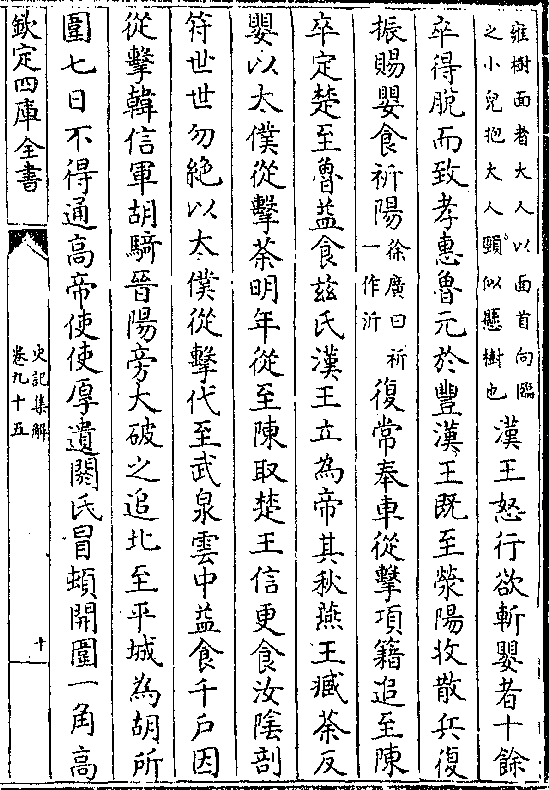 雍樹面者大人以面首向臨
之小兒抱大人頸似懸樹也
漢王怒行欲斬嬰者十餘
卒得脫而致孝惠魯元於豐漢王既至滎陽收散兵復
振賜嬰食祈陽
徐廣曰祈
一作沂
復常奉車從擊項籍追至陳
卒定楚至魯益食兹氏漢王立為帝其秋燕王臧荼反
嬰以太僕從擊荼明年從至陳取楚王信更食汝陰剖
符世世勿絶以太僕從擊代至武泉雲中益食千户因
從擊韓信軍胡騎晉陽旁大破之追北至平城為胡所
圍七日不得通高帝使使厚遺閼氏冒頓開圍一角高
欽定四庫全書
史記集解
卷九十五
十